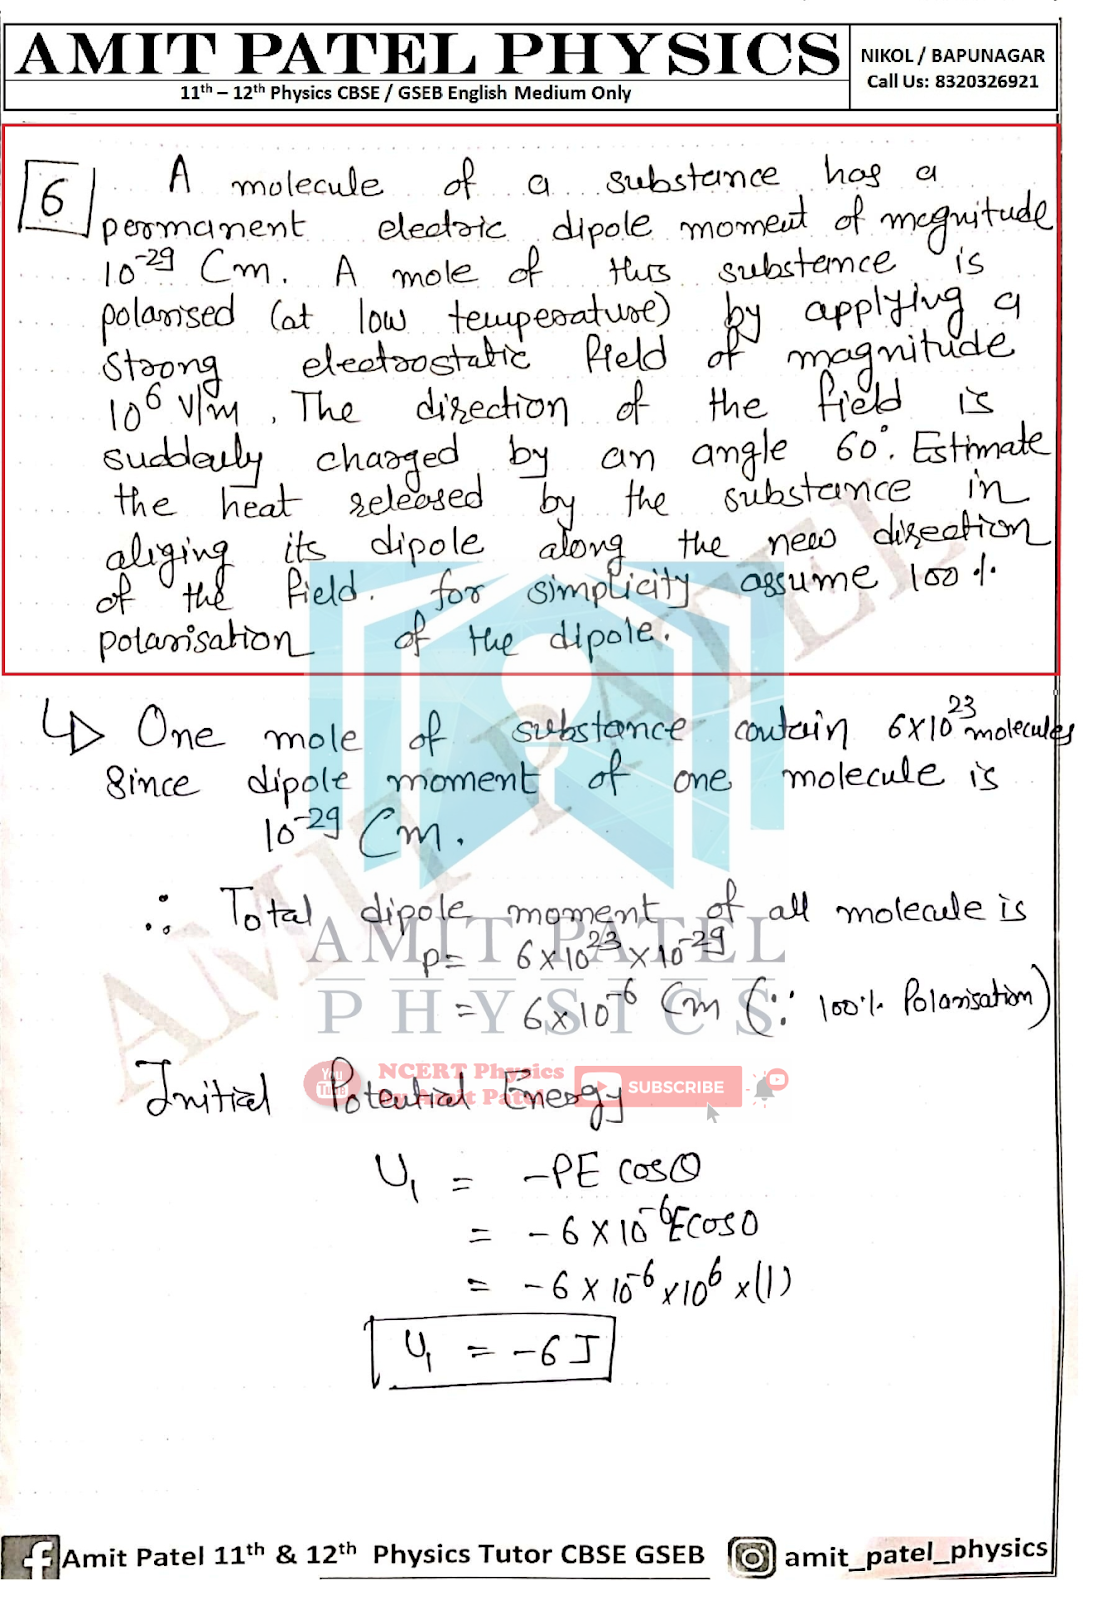 AMIT PATEL PHYSICS
11th – 12th Physics CBSE / GSEB English Medium Only
NIKOL / BAPUNAGAR
Call Us: 8320326921
6 A molecule of a substance has a
permanent electric dipole moment of magnitude
10⁻²⁹ Cm. A mole of this substance is
polarised (at low temperature) by applying a
strong electrostatic field of magnitude
10⁶ V/m. The direction of the field is
suddenly changed by an angle 60°. Estimate
the heat released by the substance in
aliging its dipole along the new direction
of the field. for simplicity assume 100%
polarisation of the dipole.
↳ One mole of substance contain 6×10²³ molecules
Since dipole moment of one molecule is
10⁻²⁹ Cm.
∴ Total dipole moment of all molecule is
p = 6×10²³ × 10⁻²⁹
= 6×10⁻⁶ Cm (∵ 100% Polarisation)
Initial Potential Energy
U₁ = -PE cosθ
= -6×10⁻⁶E cos0
= -6×10⁻⁶×10⁶×(1)
U₁ = -6J
AMIT PATEL
AMIT PATEL
PHYSICS
You Tube
NCERT Physics
By Amit Patel
SUBSCRIBE
Amit Patel 11th & 12th Physics Tutor CBSE GSEB
amit_patel_physics